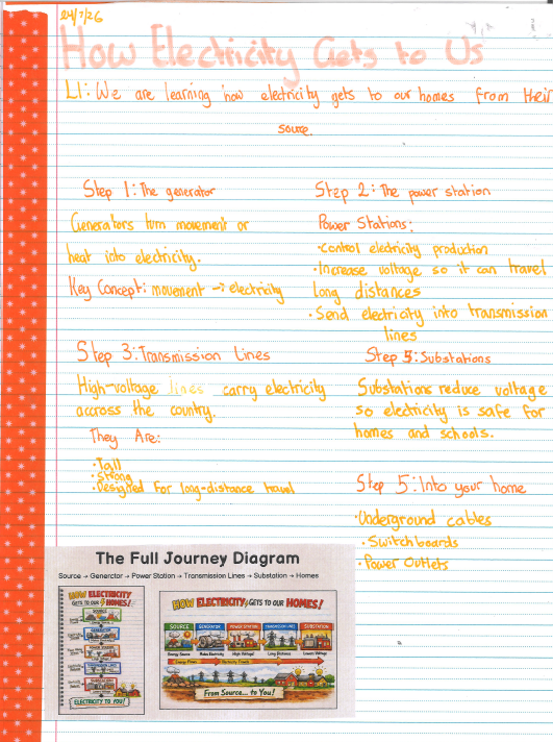 24/7/26
How Electricity Gets to Us
LI: We are learning how electricity gets to our homes from their
source.
Step 1: The generator
Generators turn movement or
heat into electricity.
Key Concept: movement → electricity
Step 2: The power station
Power Stations:
•Control electricity production
•Increase voltage so it can travel
long distances
•Send electricity into transmission
lines
Step 3: Transmission Lines
High-voltage lines carry electricity
accross the country.
They Are:
•Tall
•Strong
•Designed for long-distance travel
Step 5: Substations
Substations reduce voltage
so electricity is safe for
homes and schools.
Step 5: Into your home
•Underground cables
•Switchboards
•Power Outlets
The Full Journey Diagram
Source → Generator → Power Station → Transmission Lines → Substation → Homes
HOW ELECTRICITY
GETS TO OUR HOMES!
SOURCE
GENERATOR
POWER STATION
TRANSMISSION LINES
ELECTRICITY TO YOU!
HOW ELECTRICITY GETS TO OUR HOMES!
SOURCE
GENERATOR
POWER STATION
TRANSMISSION LINES
SUBSTATION
Energy Source
Make Electricity
High Voltage
Long Distance
Lowers Voltage
From Source... to You!